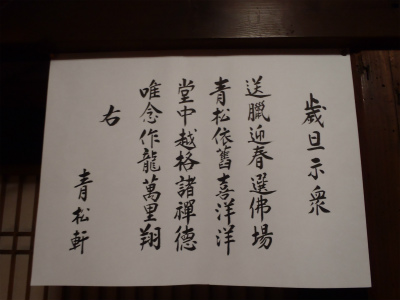 歳旦示衆
送臘迎春選佛場
青松依舊喜洋洋
堂中越格諸禪德
唯念作龍萬里翔
右
青松軒